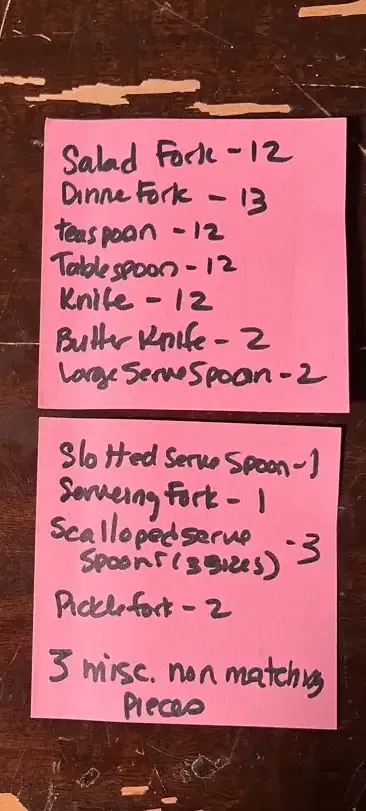 Salad Fork - 12
Dinne Fork - 13
teaspoon - 12
Tablespoon - 12
Knife - 12
Butter Knife - 2
Large Serve Spoon - 2
Slotted Serve Spoon - 1
Serveing Fork - 1
Scalloped serve
Spoons (3 sizes) - 3
Pickle fork - 2
3 misc. non matching
Pieces